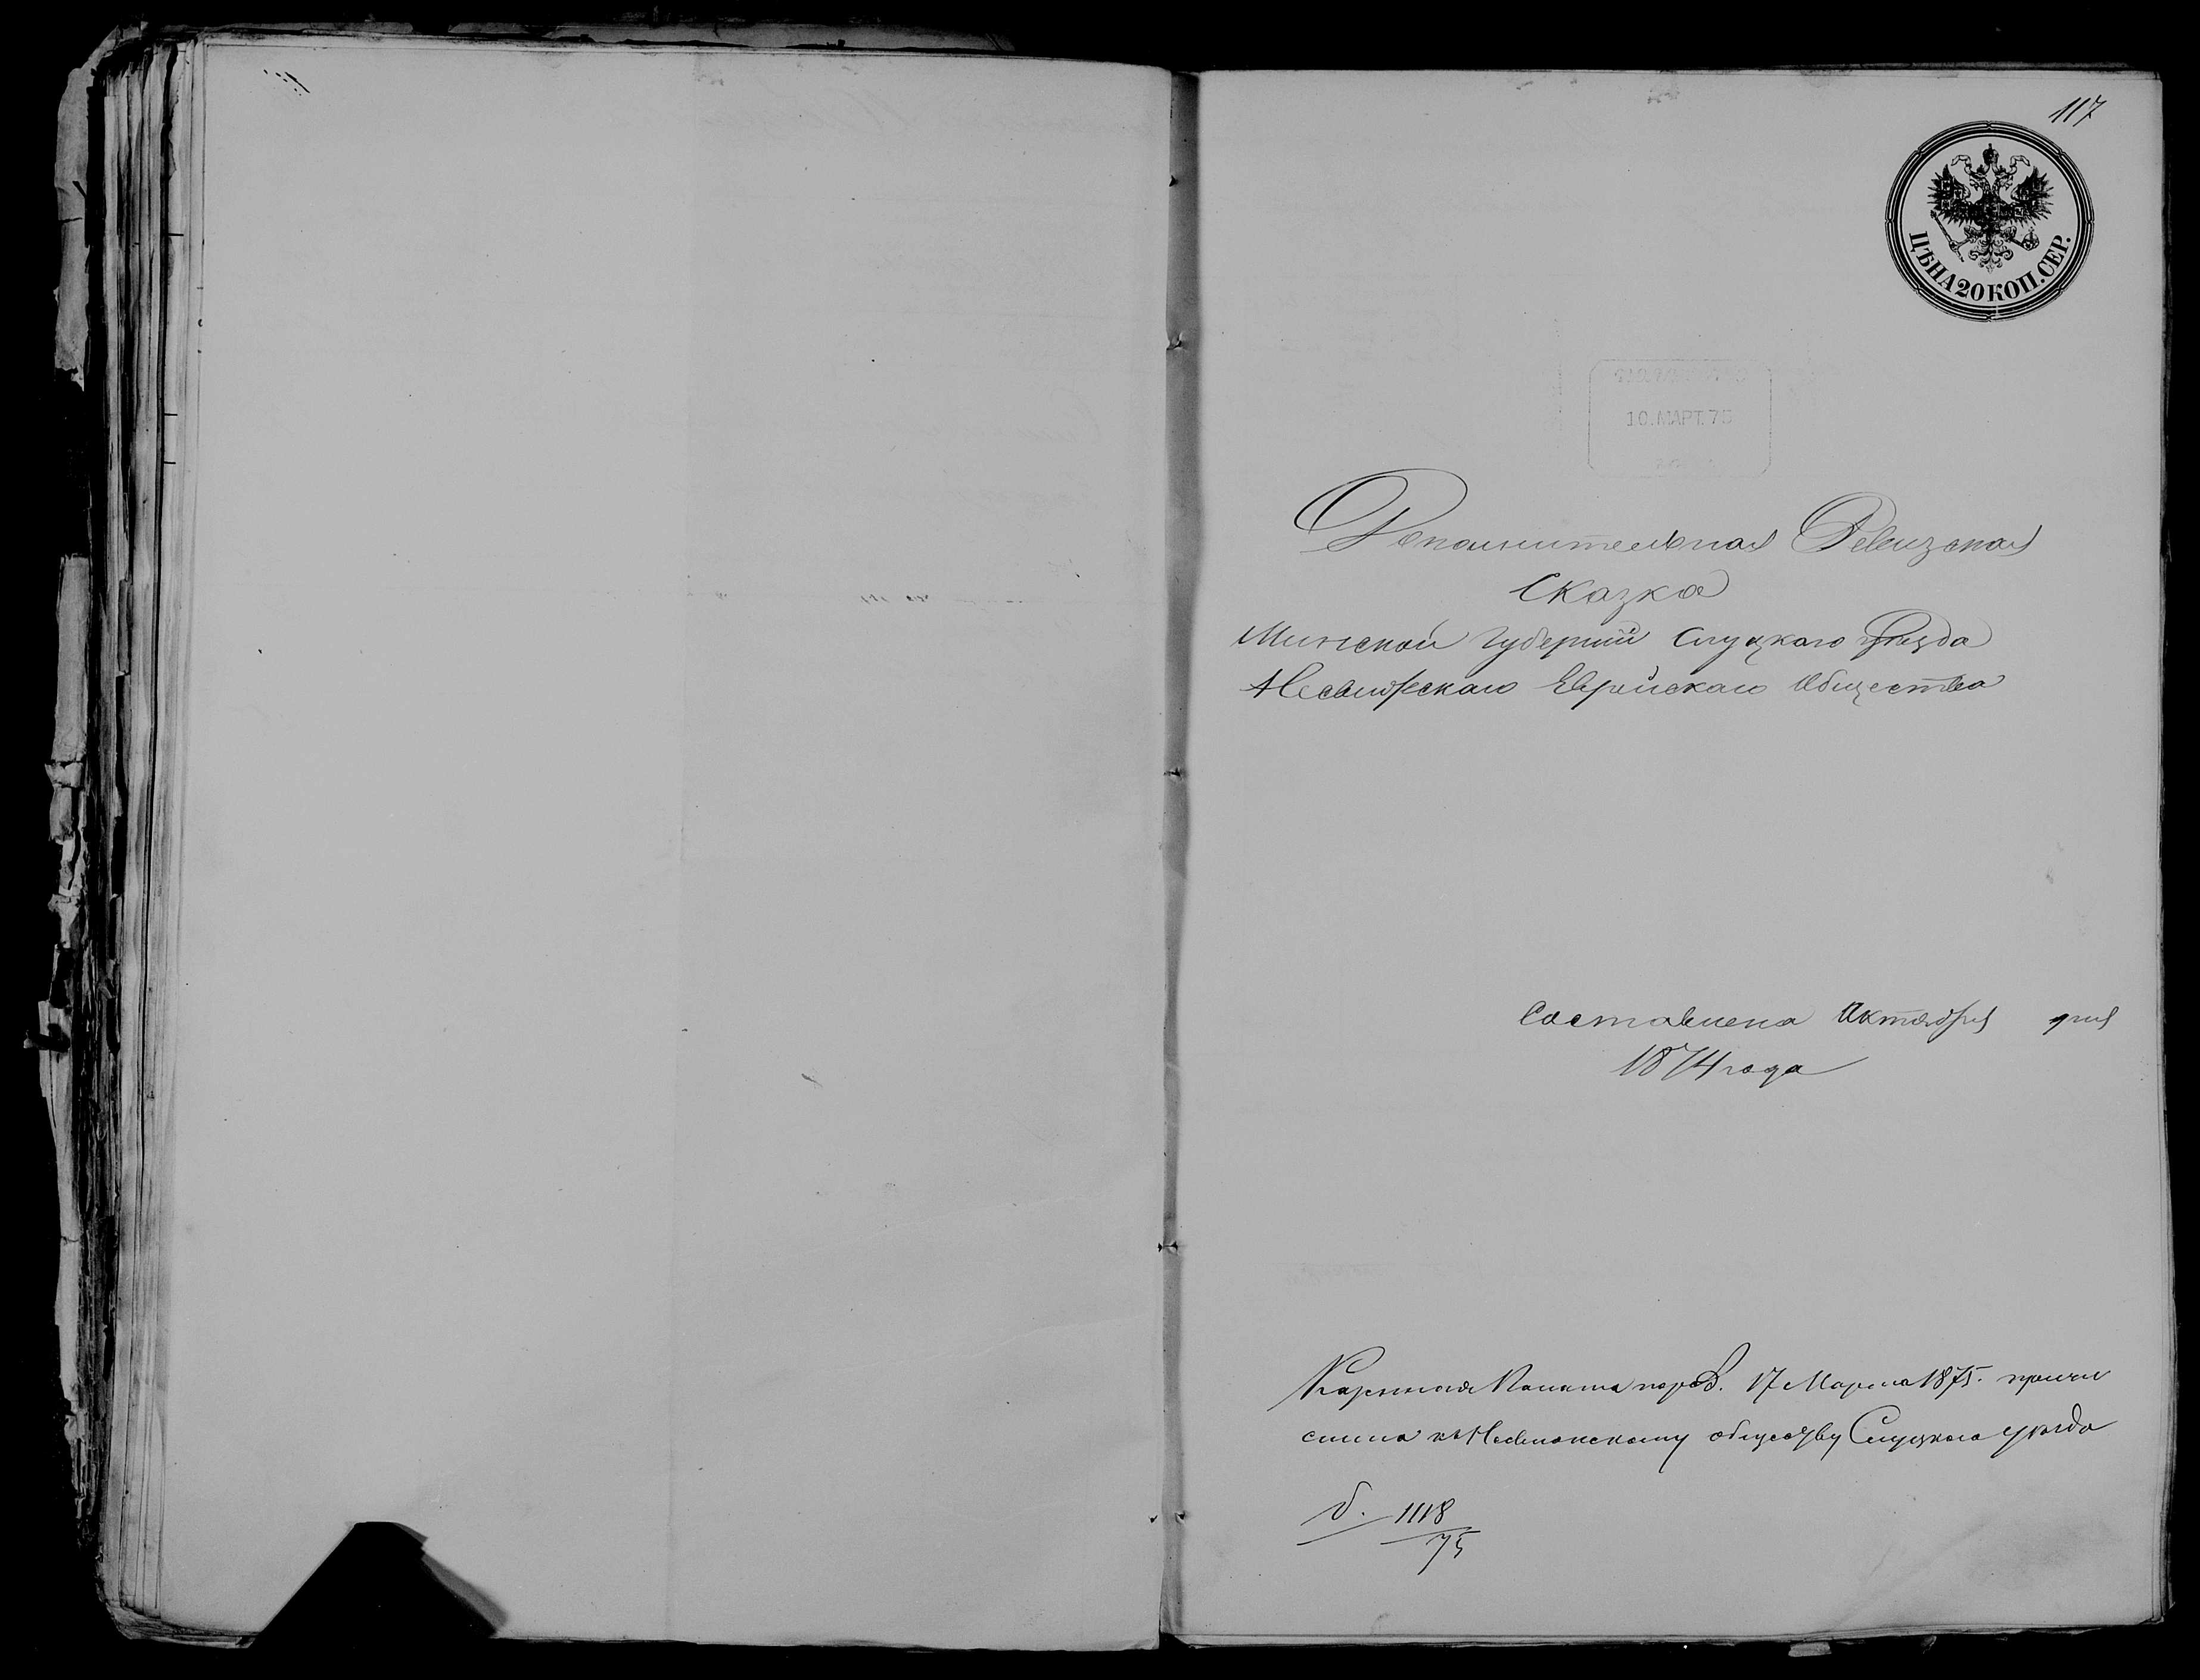 117
ЦѢНА 20 КОП. СЕР.
10.МАРТ.75
Дополнительная Ревизская
Сказка
Минской Губернии Слуцкаго уѣзда
Несвижскаго Еврейскаго Общества
Составлена Октября дня
1874 года
Казенная Палата 17 Марта 1875. причи
слила къ обществу Слуцкаго уѣзда
б. 1118
75